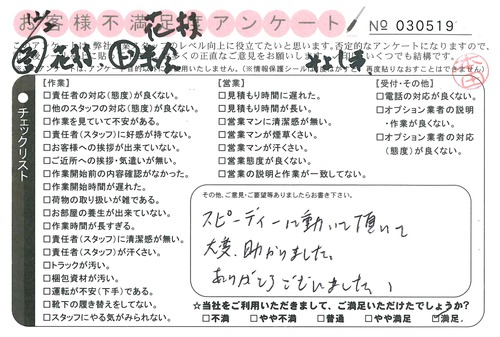 お客様不満足度アンケート
No 030519
このアンケートは弊社
のレベル向上に役立てたいと思います。否定的なアンケートになりますので、
多くの正直なご意見をお願いします。
いくつでも結構です。
目的以外では使用いたしません。(※情報保護シール
再度貼りなおすことはできません)
チェックリスト
【作業】
□責任者の対応(態度)が良くない。
□他のスタッフの対応(態度)が良くない。
□作業を見ていて不安がある。
□責任者(スタッフ)に好感が持てない。
□お客様への挨拶が出来ていない。
□ご近所への挨拶・気遣いが無い。
□作業開始前の内容確認がなかった。
□作業開始時間が遅れた。
□荷物の取り扱いが雑である。
□お部屋の養生が出来ていない。
□作業時間が長すぎる。
□責任者(スタッフ)に清潔感が無い。
□責任者(スタッフ)が汗くさい。
□トラックが汚い。
□梱包資材が汚い。
□運転が不安(下手)である。
□靴下の履き替えをしてない。
□スタッフにやる気がみられない。
【営業】
□見積もり時間に遅れた。
□見積もり時間が長い。
□営業マンに清潔感が無い。
□営業マンが煙草くさい。
□営業マンが汗くさい。
□営業態度が良くない。
□営業の説明と作業が一致してない。
【受付・その他】
□電話の対応が良くない。
□オプション業者の説明
・作業が良くない。
□オプション業者の対応
(態度)が良くない。
その他、ご意見・ご要望等ありましたらお書き下さい。
スピーディーに動いて頂いて
大変、助かりました。
ありがとうございました。
☆当社をご利用いただきまして、ご満足いただけたでしょうか?
□不満 □やや不満 □普通 □やや満足 ☑満足